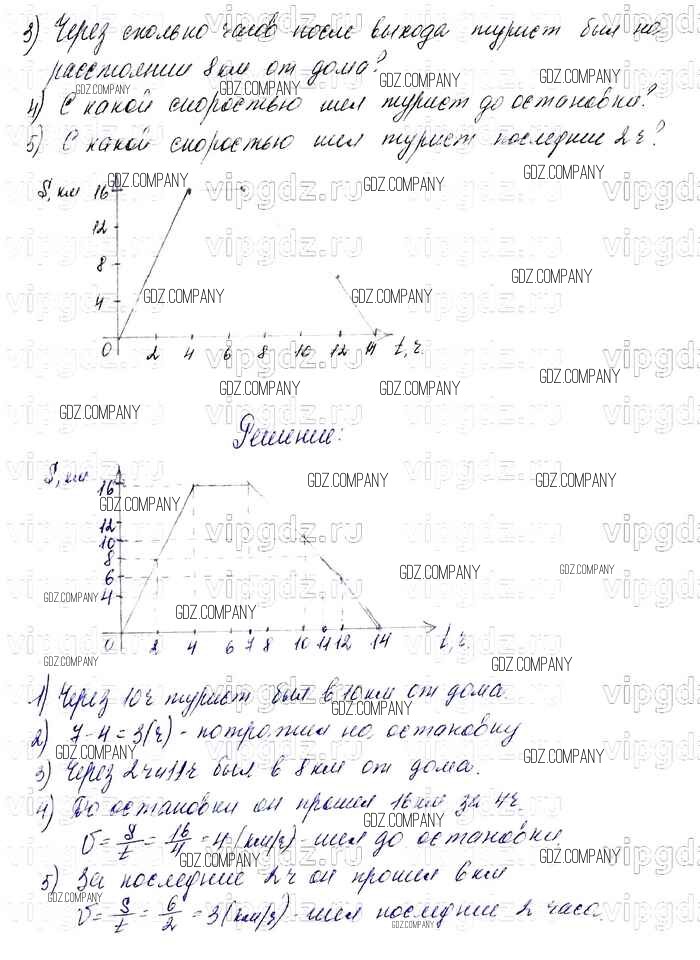 3) Через сколько часов после выхода турист был на
расстоянии 8 км от дома?
4) С какой скоростью шел турист до остановки?
5) С какой скоростью шел турист последние 2 ч?
S, км
16
12
8
4
0 2 4 6 8 10 12 14 t, ч.
Решение:
S, км
16
12
10
8
6
4
0 2 4 6 7 8 10 11 12 14 t, ч.
1) Через 10 ч турист был в 10 км от дома.
2) 7-4=3(ч) - потратил на остановку
3) Через 2ч и 11ч был в 8 км от дома.
4) До остановки он прошел 16 км за 4ч.
v = S/t = 16/4 = 4 (км/ч) - шел до остановки.
5) За последние 2 ч он прошел 6 км
v = S/t = 6/2 = 3 (км/ч) - шел последние 2 часа.
GDZ.COMPANY
vipgdz.ru